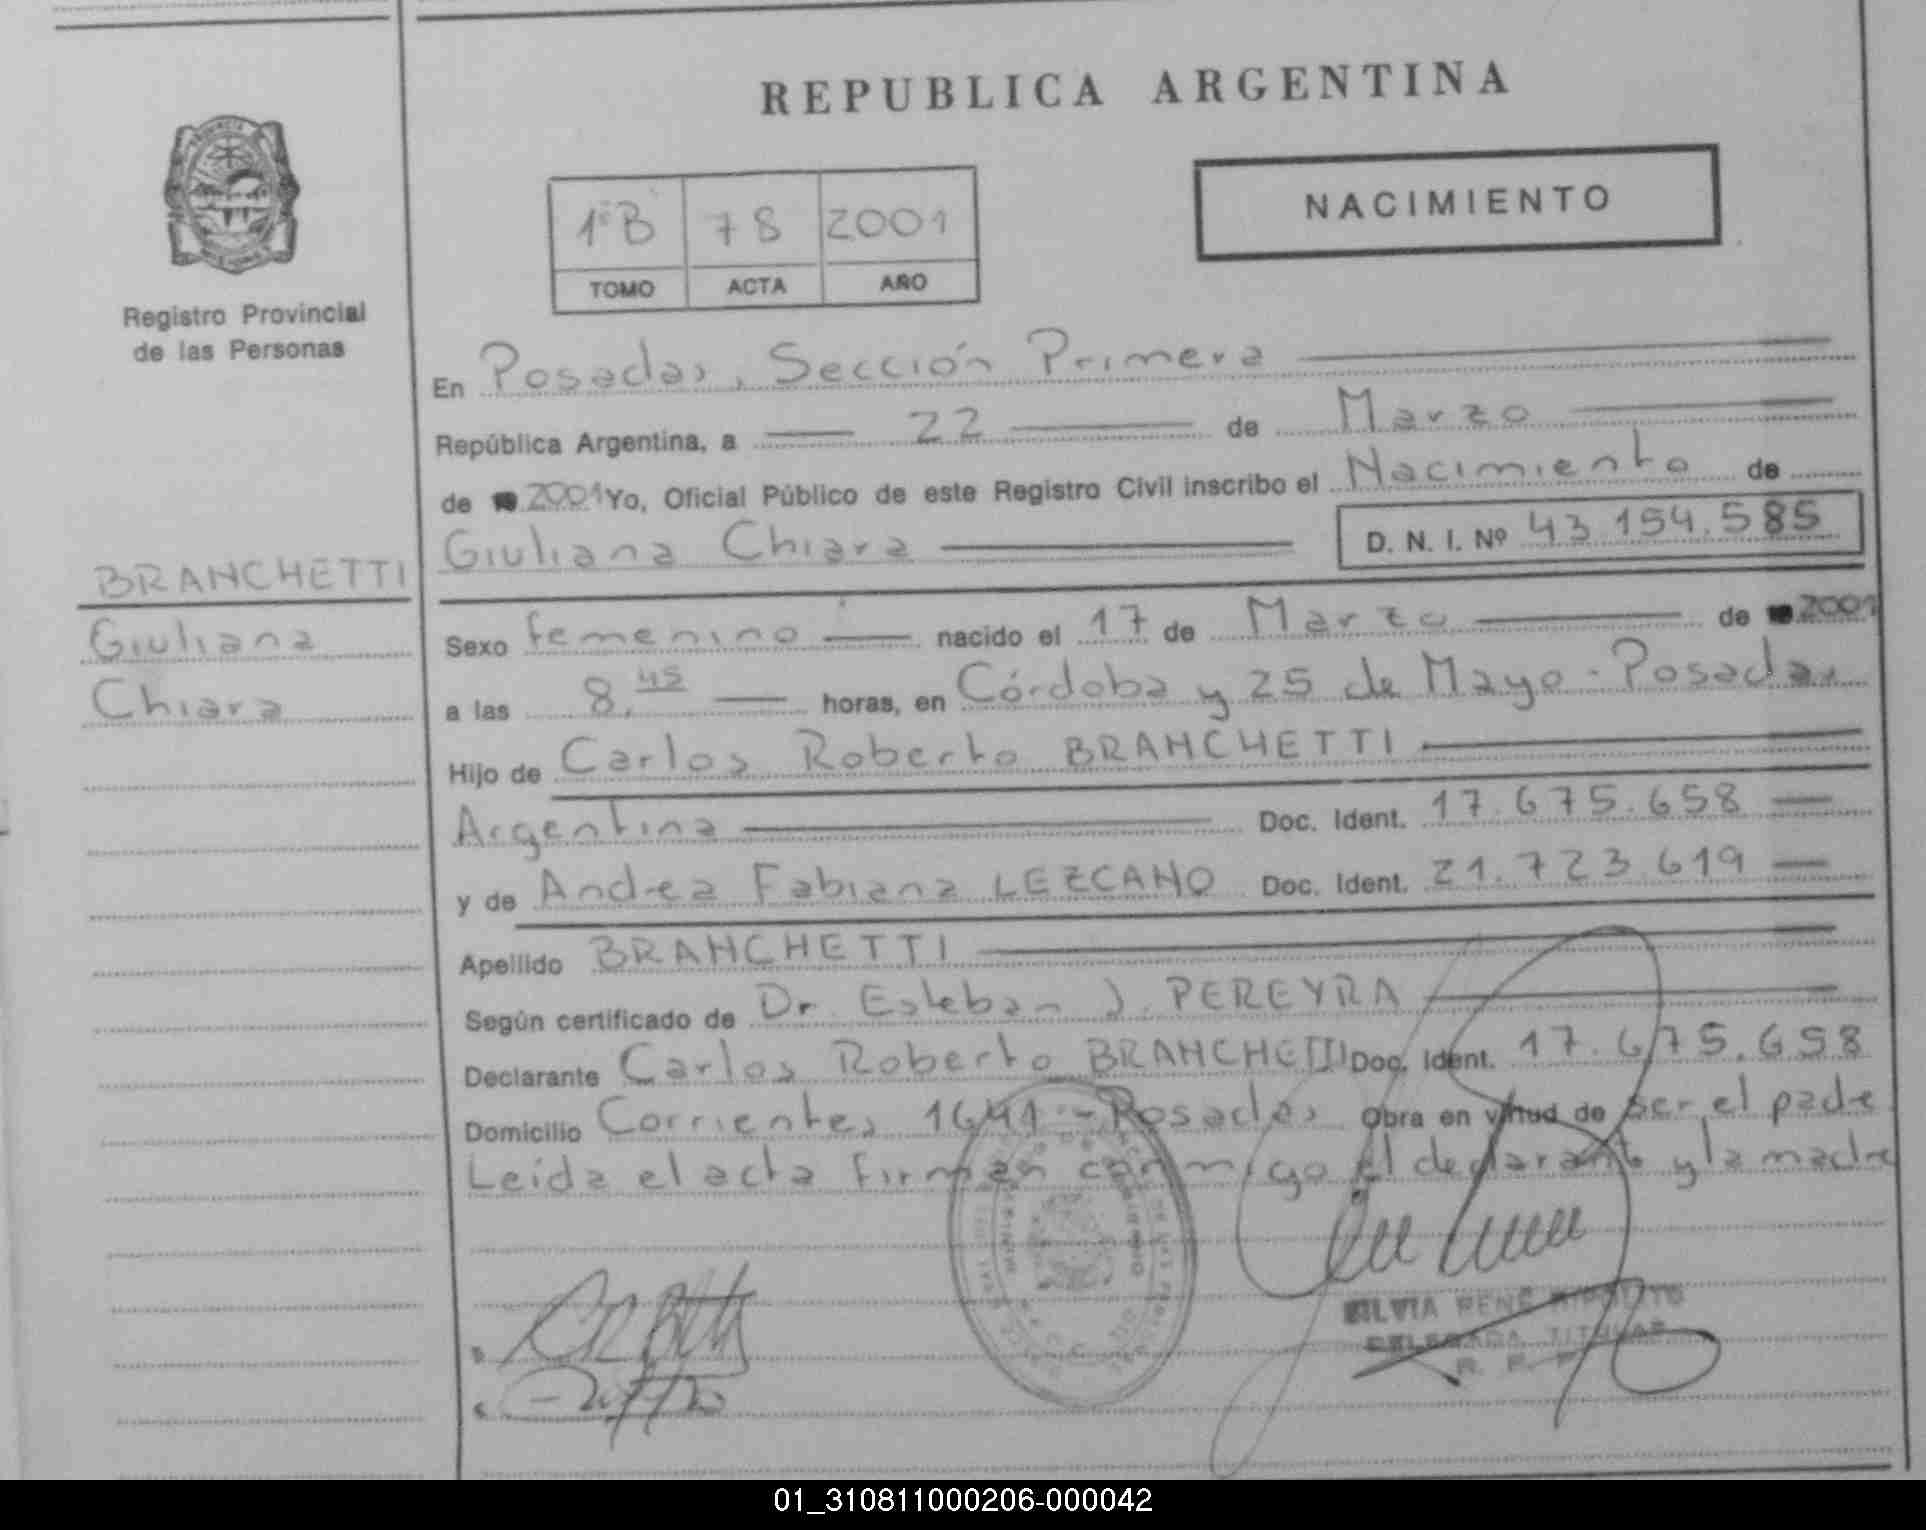 REPUBLICA ARGENTINA
NACIMIENTO
1ºB 78 2001
TOMO ACTA AÑO
Registro Provincial
de las Personas
En Posadas, Sección Primera
República Argentina, a 22 de Marzo
de 2001 Yo, Oficial Público de este Registro Civil inscribo el Nacimiento de
Giuliana Chiara D. N. I. Nº 43.154.585
BRANCHETTI
Giuliana
Chiara
Sexo femenino nacido el 17 de Marzo de 2001
a las 8,45 horas, en Córdoba y 25 de Mayo - Posadas
Hijo de Carlos Roberto BRANCHETTI
Argentina Doc. Ident. 17.675.658
y de Andrea Fabiana LEZCANO Doc. Ident. 21.723.619
Apellido BRANCHETTI
Según certificado de Dr. Esteban J. PEREYRA
Declarante Carlos Roberto BRANCHETTI Doc. Ident. 17.675.658
Domicilio Corrientes 1641 - Posadas Obra en virtud de ser el padre
Leída el acta firman conmigo el declarante y la madre
SILVIA RENE HIPOLITO
DELEGADA TITULAR
R. P. P.
01_310811000206-000042